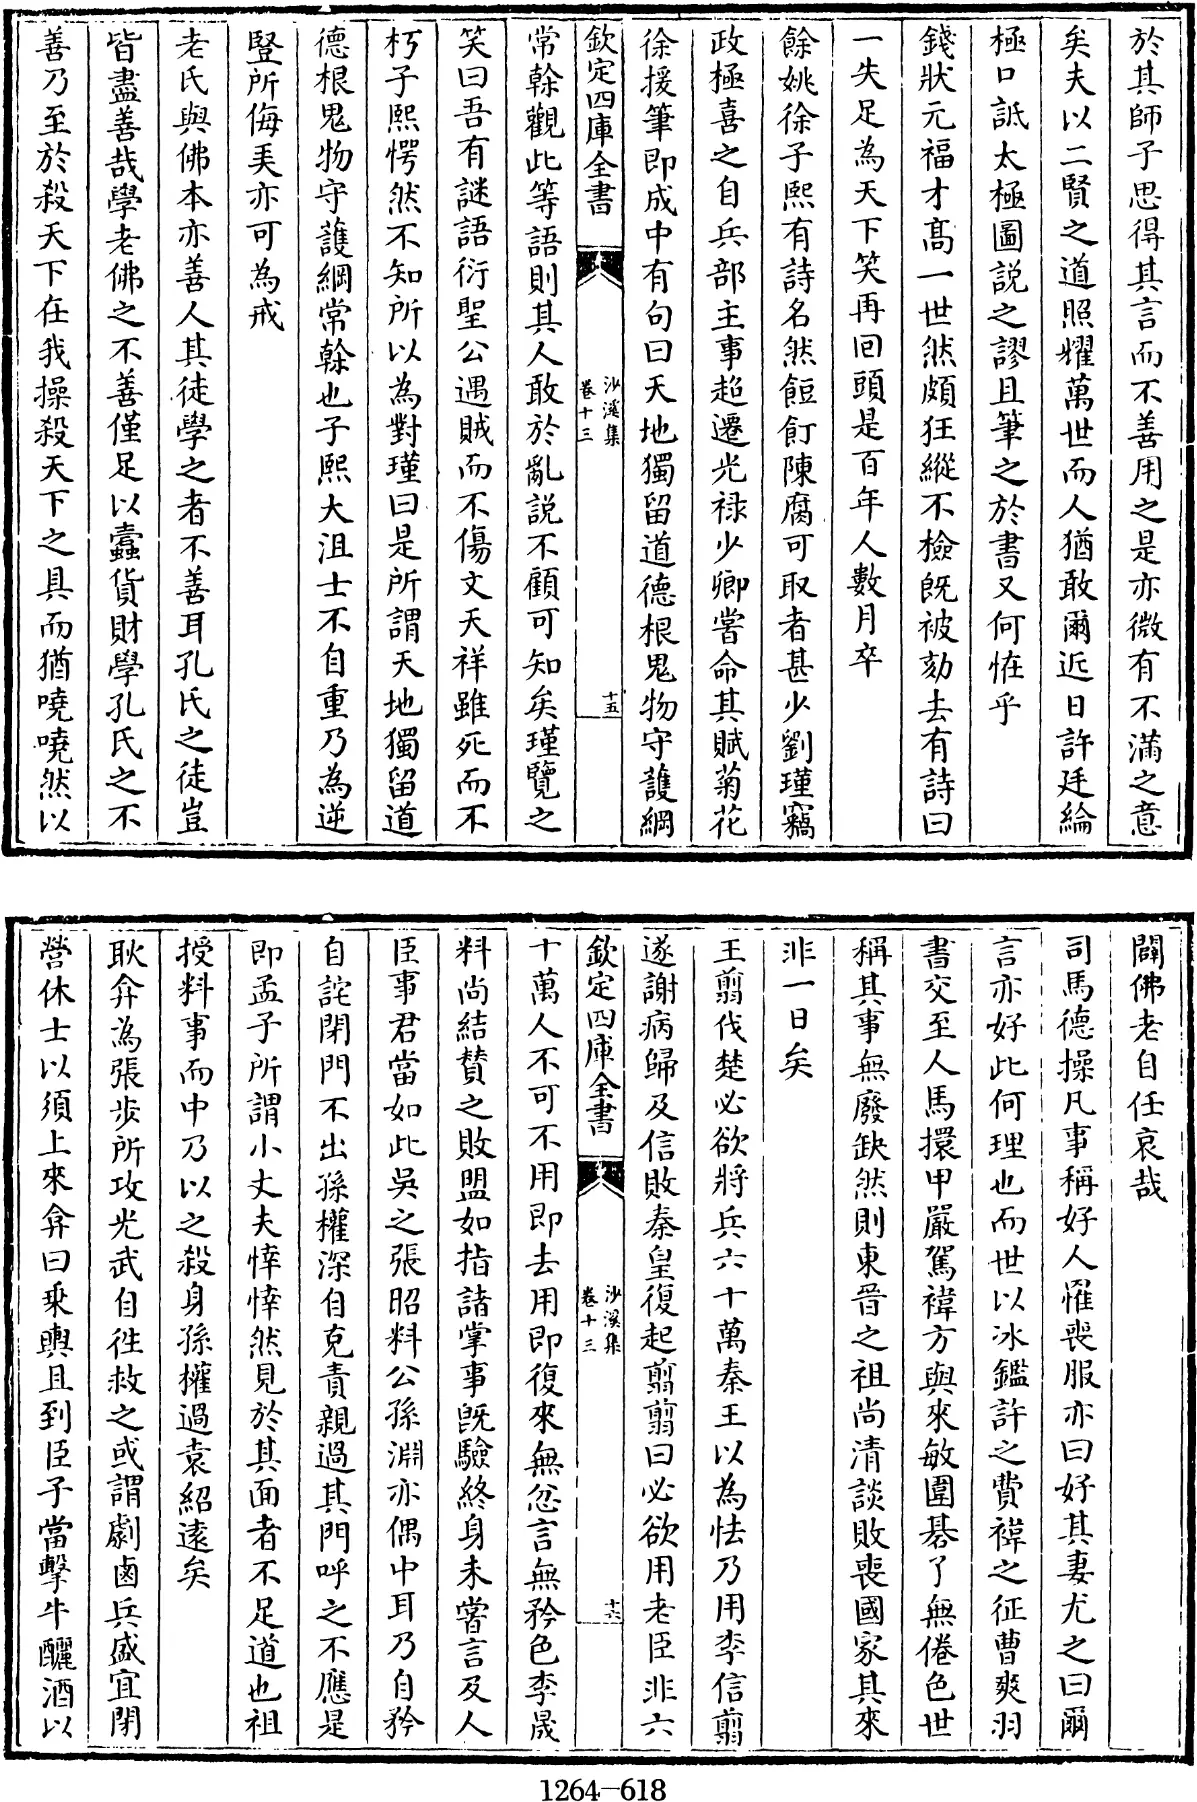 於其師子思得其言而不善用之是亦微有不滿之意
矣夫以二賢之道照耀萬世而人猶敢爾近日許廷綸
極口詆太極圖説之謬且筆之於書又何恠乎
錢狀元福才髙一世然頗狂縱不檢既被劾去有詩曰
一失足為天下笑再回頭是百年人數月卒
餘姚徐子熙有詩名然餖飣陳腐可取者甚少劉瑾竊
政極喜之自兵部主事超遷光禄少卿嘗命其賦菊花
徐援筆即成中有句曰天地獨留道德根鬼物守護綱
欽定四庫全書
沙溪集
卷十三
十五
常榦觀此等語則其人敢於亂説不顧可知矣瑾覽之
笑曰吾有謎語衍聖公遇賊而不傷文天祥雖死而不
朽子熙愕然不知所以為對瑾曰是所謂天地獨留道
德根鬼物守護綱常榦也子熙大沮士不自重乃為逆
豎所侮羙亦可為戒
老氏與佛本亦善人其徒學之者不善耳孔氏之徒豈
皆盡善哉學老佛之不善僅足以蠧貨財學孔氏之不
善乃至於殺天下在我操殺天下之具而猶嘵嘵然以
闢佛老自任哀哉
司馬德操凡事稱好人罹喪服亦曰好其妻尤之曰爾
言亦好此何理也而世以冰鑑許之費禕之征曹爽羽
書交至人馬擐甲嚴駕禕方與來敏圍棊了無倦色世
稱其事無廢缺然則東晉之祖尚清談敗喪國家其來
非一日矣
王翦伐楚必欲將兵六十萬秦王以為怯乃用李信翦
遂謝病歸及信敗秦皇復起翦翦曰必欲用老臣非六
欽定四庫全書
沙溪集
卷十三
十六
十萬人不可不用即去用即復來無忿言無矜色李晟
料尚結賛之敗盟如指諸掌事既驗終身未嘗言及人
臣事君當如此吳之張昭料公孫淵亦偶中耳乃自矜
自詫閉門不出孫權深自克責親過其門呼之不應是
即孟子所謂小丈夫悻悻然見於其面者不足道也祖
授料事而中乃以之殺身孫權過袁紹逺矣
耿弇為張步所攻光武自徃救之或謂劇鹵兵盛宜閉
營休士以須上來弇曰乗輿且到臣子當擊牛釃酒以
1264-618